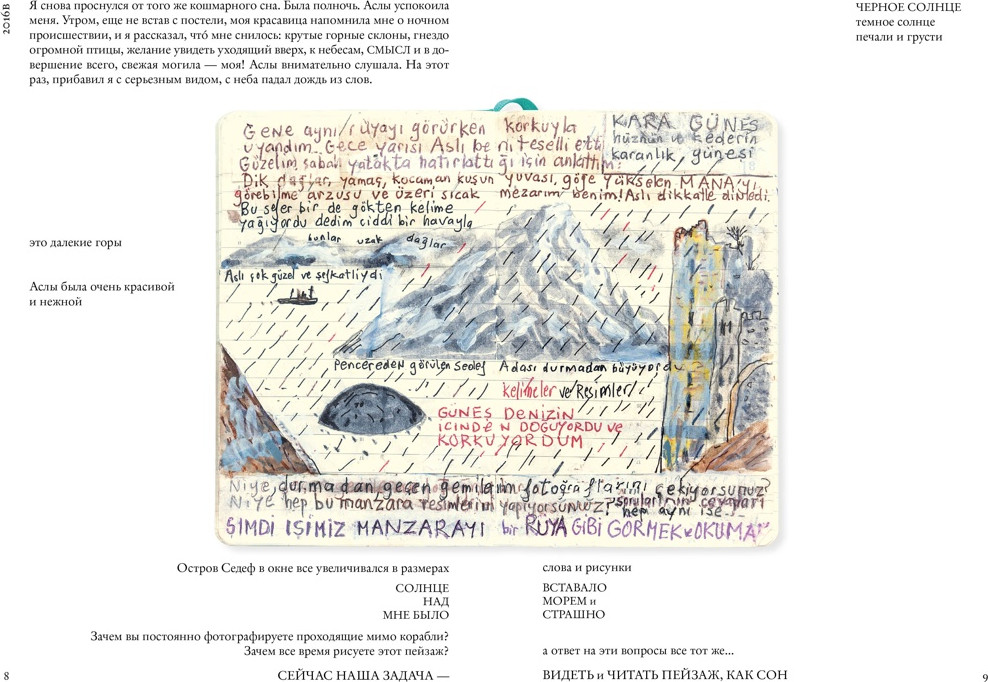 2016В
Я снова проснулся от того же кошмарного сна. Была полночь. Аслы успокоила
меня. Утром, еще не встав с постели, моя красавица напомнила мне о ночном
происшествии, и я рассказал, что́ мне снилось: крутые горные склоны, гнездо
огромной птицы, желание увидеть уходящий вверх, к небесам, СМЫСЛ и в до-
вершение всего, свежая могила — моя! Аслы внимательно слушала. На этот
раз, прибавил я с серьезным видом, с неба падал дождь из слов.
ЧЕРНОЕ СОЛНЦЕ
темное солнце
печали и грусти
Gene aynı rüyayı görürken korkuyla
uyandım. Gece yarısı Aslı beni teselli etti
Güzelim sabah yatakta hatırlattığı için anlattım:
KARA GÜNEŞ
hüznün ve kederin
karanlık güneşi
Dik dağlar, yamaç, kocaman kuşun yuvası, göğe yükselen MANA'yı
görebilme arzusu ve üzeri sıcak mezarım benim! Aslı dikkatle dinledi.
Bu sefer bir de gökten kelime
yağıyordu dedim ciddi bir havayla
bunlar uzak dağlar
Aslı çok güzel ve şefkatliydi
это далекие горы
Аслы была очень красивой
и нежной
Pencereden görülen Sedef Adası durmadan büyüyordu
kelimeler ve Resimler
GÜNEŞ DENİZİN
İÇİNDEN DOĞUYORDU ve
KORKUYORDUM
Niye durmadan geçen gemilerin fotoğraflarını çekiyorsunuz?
Niye hep bu manzara resimlerini yapıyorsunuz? soruların cevapları
hep aynı ise
ŞİMDİ İŞİMİZ MANZARAYI bir RÜYA GİBİ GÖRMEK ve OKUMAK
Остров Седеф в окне все увеличивался в размерах
слова и рисунки
СОЛНЦЕ
НАД
МНЕ БЫЛО
ВСТАВАЛО
МОРЕМ и
СТРАШНО
Зачем вы постоянно фотографируете проходящие мимо корабли?
Зачем все время рисуете этот пейзаж?
а ответ на эти вопросы все тот же...
СЕЙЧАС НАША ЗАДАЧА —
ВИДЕТЬ и ЧИТАТЬ ПЕЙЗАЖ, КАК СОН
8
9